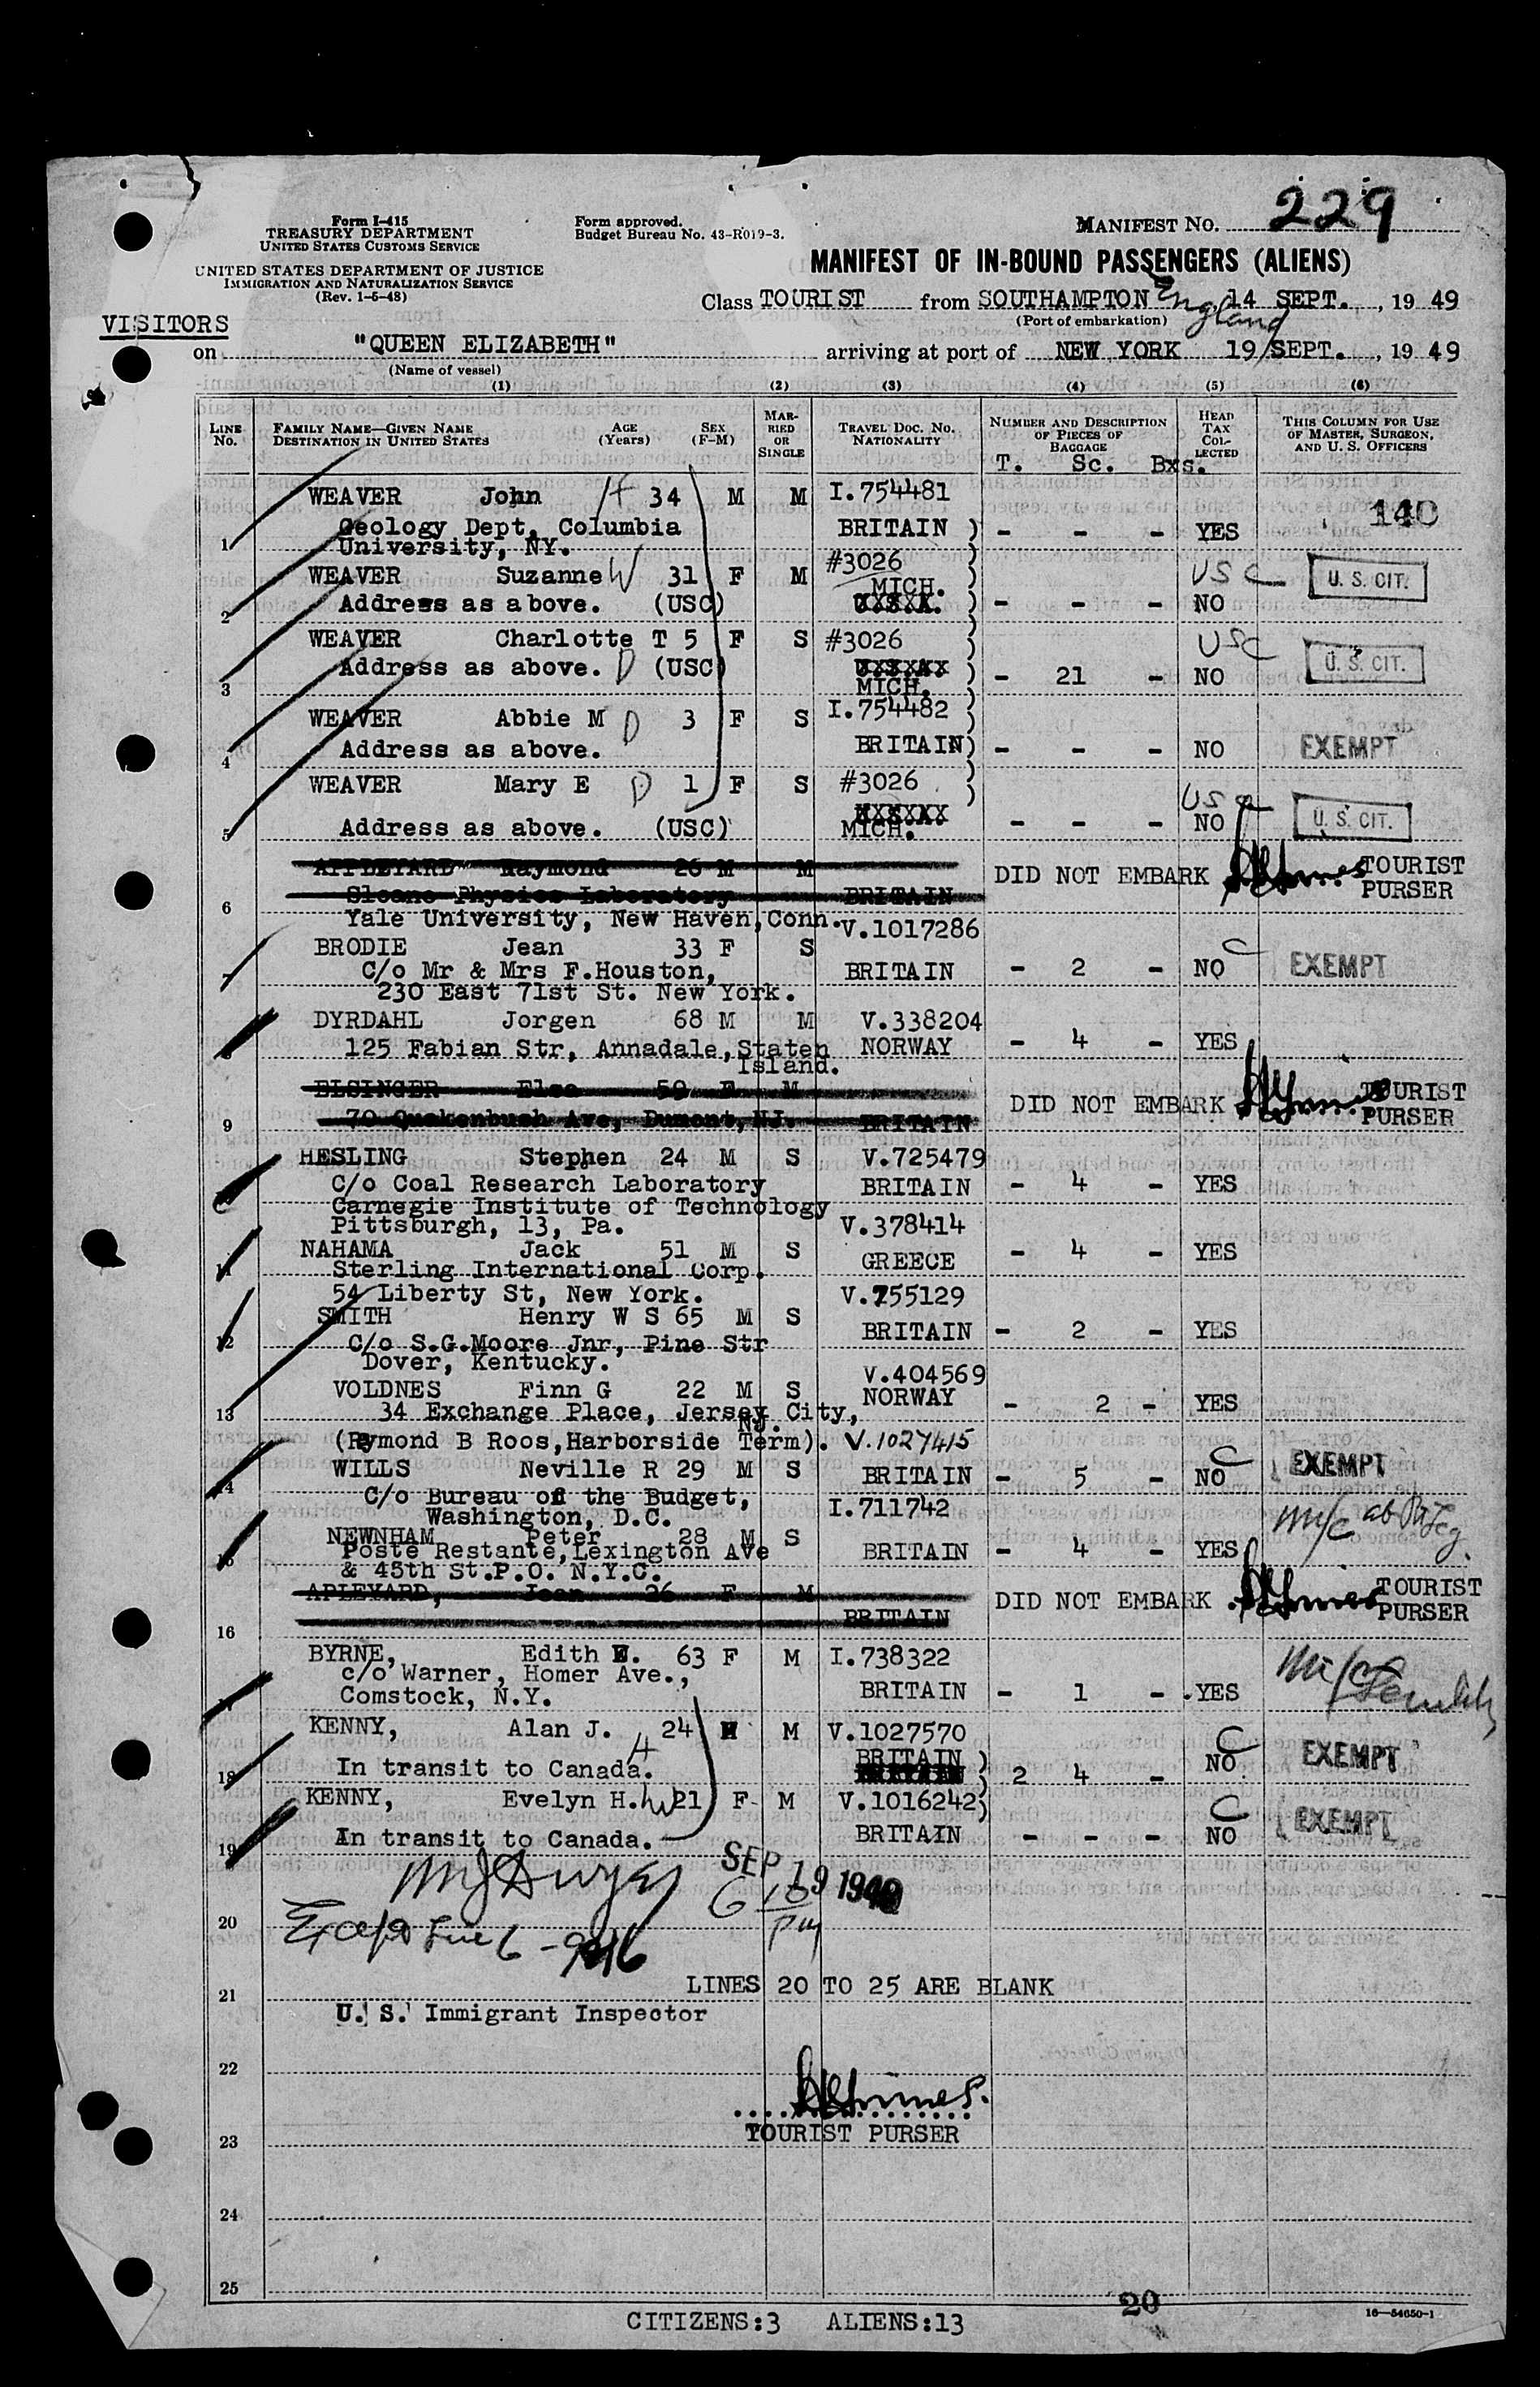 229
Form I-415
TREASURY DEPARTMENT
UNITED STATES CUSTOMS SERVICE
Form approved.
Budget Bureau No. 43-R019-3.
MANIFEST NO.
UNITED STATES DEPARTMENT OF JUSTICE
IMMIGRATION AND NATURALIZATION SERVICE
(Rev. 1-5-48)
MANIFEST OF IN-BOUND PASSENGERS (ALIENS)
Class TOURIST from SOUTHAMPTON England 14 SEPT., 1949
(Port of embarkation)
VISITORS
on "QUEEN ELIZABETH" arriving at port of NEW YORK 19 SEPT., 1949
(Name of vessel)
(1) (2) (3) (4) (5) (6)
LINE No. FAMILY NAME—GIVEN NAME DESTINATION IN UNITED STATES AGE (Years) SEX (F-M) MARRIED OR SINGLE TRAVEL DOC. NO. NATIONALITY NUMBER AND DESCRIPTION OF PIECES OF BAGGAGE HEAD TAX COLLECTED THIS COLUMN FOR USE OF MASTER, SURGEON, AND U. S. OFFICERS
T. Sc. Bxs.
WEAVER John H 34 M M I.754481
140
Geology Dept, Columbia BRITAIN ) - - - YES
1 University, NY.
WEAVER Suzanne W 31 F M #3026 USC U. S. CIT.
MICH.
2 Address as above. (USC) U.S.A. ) - - - NO
WEAVER Charlotte T 5 F S #3026 USC U. S. CIT.
Address as above. D (USC) - 21 - NO
3 MICH.
WEAVER Abbie M D 3 F S I.754482
4 Address as above. BRITAIN) - - - NO EXEMPT
WEAVER Mary E D 1 F S #3026 USC
5 Address as above. (USC) MICH. - - - NO U. S. CIT.
APPLEYARD Raymond 26 M M DID NOT EMBARK TOURIST PURSER
Sloane Physics Laboratory BRITAIN
6 Yale University, New Haven, Conn. V.1017286
BRODIE Jean 33 F S
7 C/o Mr & Mrs F.Houston, BRITAIN - 2 - NO C EXEMPT
230 East 71st St. New York.
DYRDAHL Jorgen 68 M M V.338204
8 125 Fabian Str, Annadale, Staten Island. NORWAY - 4 - YES
ELSINGER Else 59 F M DID NOT EMBARK TOURIST PURSER
9 70 Quakenbush Ave, Dumont, NJ. BRITAIN
HESLING Stephen 24 M S V.725479
C/o Coal Research Laboratory BRITAIN - 4 - YES
Carnegie Institute of Technology
Pittsburgh, 13, Pa. V.378414
NAHAMA Jack 51 M S - 4 - YES
11 Sterling International Corp. GREECE
54 Liberty St, New York. V.255129
SMITH Henry W S 65 M S
12 C/o S.G.Moore Jnr, Pine Str BRITAIN - 2 - YES
Dover, Kentucky.
V.404569
VOLDNES Finn G 22 M S NORWAY - 2 - YES
13 34 Exchange Place, Jersey City, NJ.
(Rymond B Roos, Harborside Term). V.1027415
WILLS Neville R 29 M S BRITAIN - 5 - NO C EXEMPT
14 C/o Bureau of the Budget,
Washington, D.C. I.711742
NEWNHAM Peter 28 M S
15 Poste Restante, Lexington Ave BRITAIN - 4 - YES
& 45th St.P.O. N.Y.C.
APLEYARD, Jean 26 F M DID NOT EMBARK TOURIST PURSER
BRITAIN
16
BYRNE, Edith E. 63 F M I.738322
c/o Warner, Homer Ave.,
17 Comstock, N.Y. BRITAIN - 1 - YES
KENNY, Alan J. 24 M M V.1027570
BRITAIN
18 In transit to Canada. H 2 4 - NO C EXEMPT
KENNY, Evelyn H. W 21 F M V.1016242)
19 In transit to Canada. BRITAIN - - - NO C EXEMPT
SEP 19 1949
20
21 LINES 20 TO 25 ARE BLANK
U. S. Immigrant Inspector
22
TOURIST PURSER
23
24
25
20
CITIZENS:3 ALIENS:13
16—54650-1